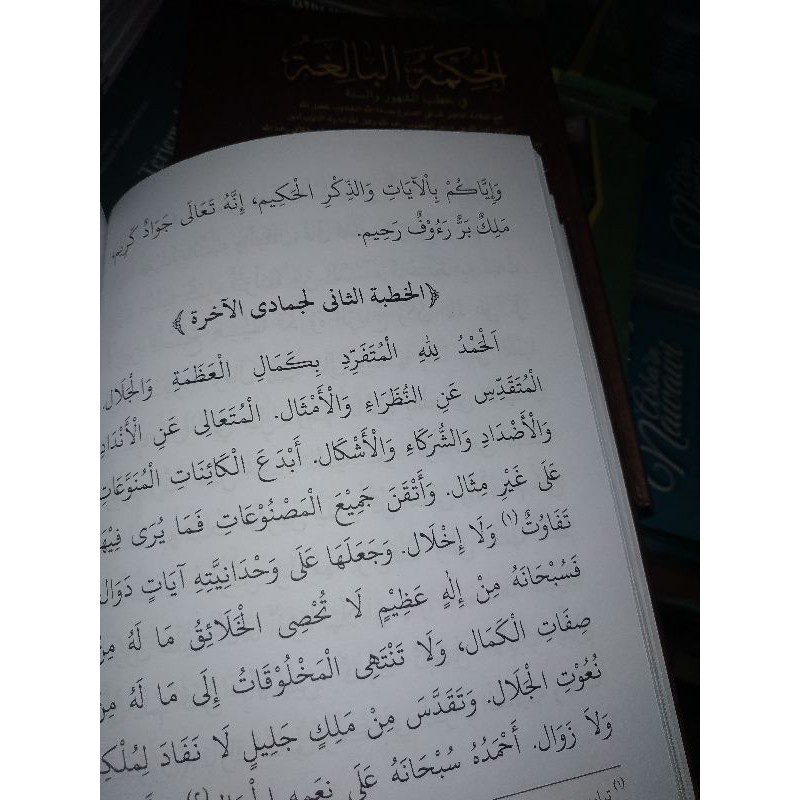 الحكمة البالغة
في خطب الشهور والسنة
وَإِيَّاكُمْ بِالْآيَاتِ وَالذِّكْرِ الْحَكِيمِ، إِنَّهُ تَعَالَى جَوَادٌ كَرِيم،
مَلِكٌ بَرٌّ رَءُوْفٌ رَحِيم.
﴿الخطبة الثانى لجمادى الآخرة﴾
اَلْحَمْدُ لِلّٰهِ الْمُتَفَرِّدِ بِكَمَالِ الْعَظَمَةِ وَالْجَلَال.
الْمُتَقَدِّسِ عَنِ النُّظَرَاءِ وَالْأَمْثَال. الْمُتَعَالِى عَنِ الْأَنْدَادِ
وَالْأَضْدَادِ وَالشُّرَكَاءِ وَالْأَشْكَال. أَبْدَعَ الْكَائِنَاتِ الْمُنَوَّعَاتِ
عَلَى غَيْرِ مِثَال. وَأَتْقَنَ جَمِيْعَ الْمَصْنُوْعَاتِ فَمَا يُرَى فِيْهَا
تَفَاوُتٌ(١) وَلَا إِخْلَال. وَجَعَلَهَا عَلَى وَحْدَانِيَّتِهِ آيَاتٍ دَوَال
فَسُبْحَانَهُ مِنْ إِلٰهٍ عَظِيْمٍ لَا تُحْصِى الْخَلَائِقُ مَا لَهُ مِنْ
صِفَاتِ الْكَمَال، وَلَا تَنْتَهِى الْمَخْلُوْقَاتُ إِلَى مَا لَهُ مِنْ
نُعُوْتِ الْجَلَال. وَتَقَدَّسَ مِنْ مَلِكٍ جَلِيلٍ لَا نَفَادَ لِمُلْكِهِ
وَلَا زَوَال. أَحْمَدُهُ سُبْحَانَهُ عَلَى نِعَمِهِ
(١)